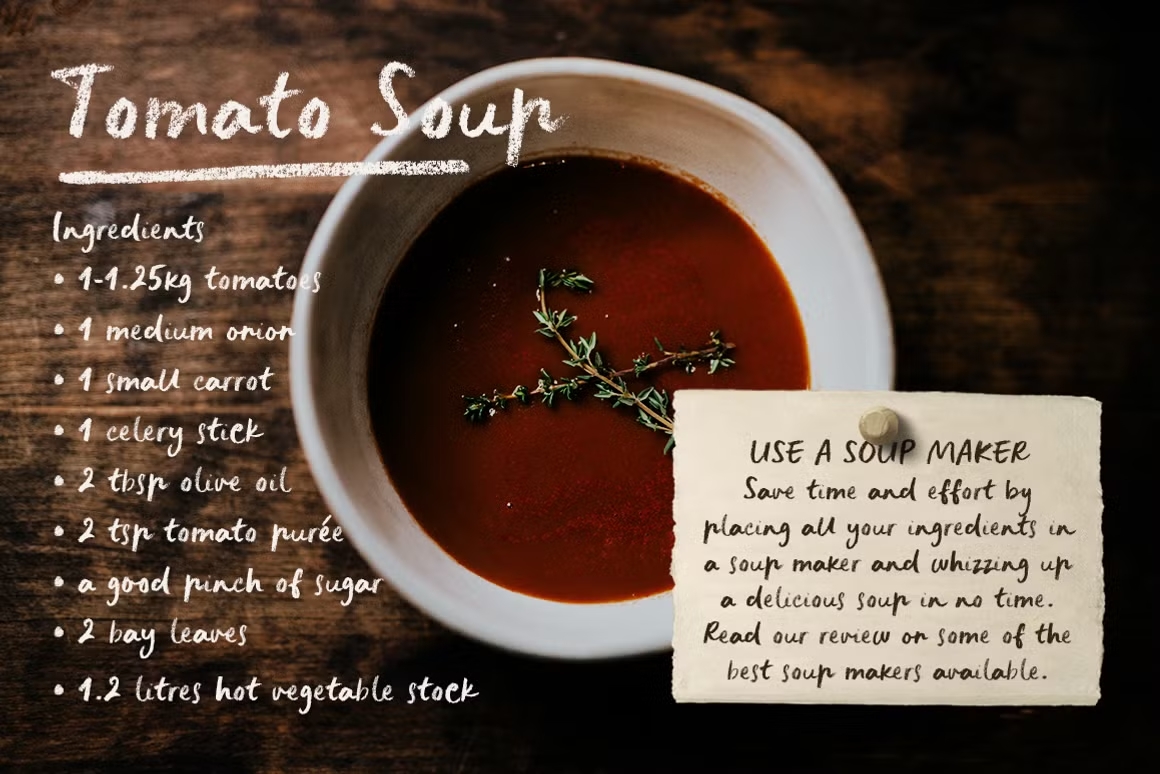 Tomato Soup
Ingredients
• 1-1.25kg tomatoes
• 1 medium onion
• 1 small carrot
• 1 celery stick
• 2 tbsp olive oil
• 2 tsp tomato purée
• a good pinch of sugar
• 2 bay leaves
• 1.2 litres hot vegetable stock
USE A SOUP MAKER
Save time and effort by
placing all your ingredients in
a soup maker and whizzing up
a delicious soup in no time.
Read our review on some of the
best soup makers available.